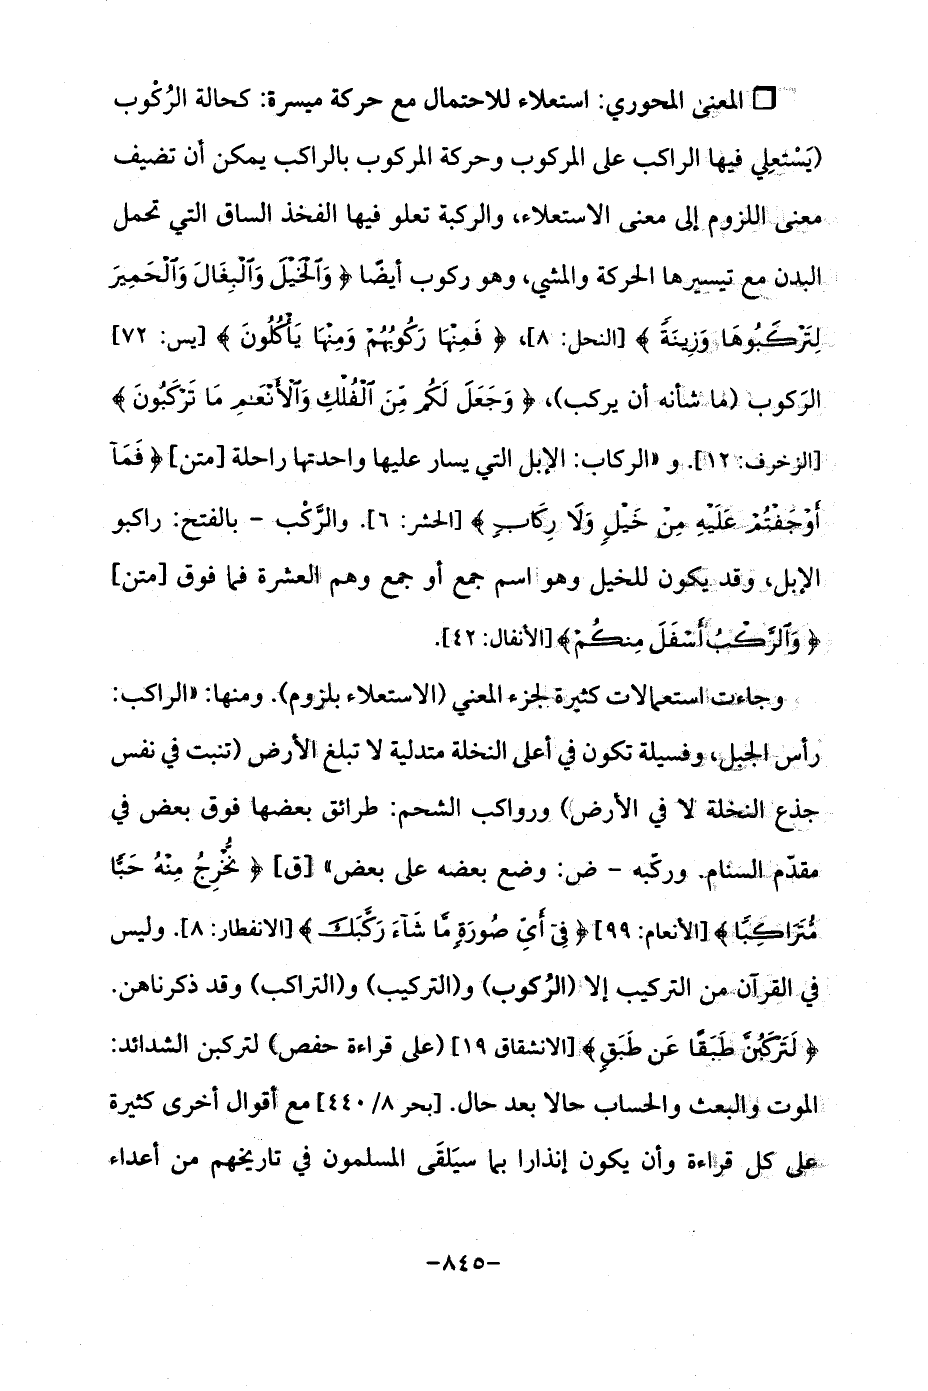 □ المعنى المحوري: استعلاء للاحتمال مع حركة ميسرة: كحالة الرُكْوب
(يَسْتَعلِي فيها الراكب على المركوب وحركة المركوب بالراكب يمكن أن تضيف
معنى اللزوم إلى معنى الاستعلاء، والركبة تعلو فيها الفخذ الساق التي تحمل
البدن مع تيسيرها الحركة والمشي، وهو ركوب أيضًا ﴿ وَٱلْخَيْلَ وَٱلْبِغَالَ وَٱلْحَمِيرَ
لِتَرْكَبُوهَا وَزِينَةً ﴾ [النحل: ٨]، ﴿ فَمِنْهَا رَكُوبُهُمْ وَمِنْهَا يَأْكُلُونَ ﴾ [يس: ٧٢]
الرَكوب (ما شأنه أن يركب)، ﴿ وَجَعَلَ لَكُم مِّنَ ٱلْفُلْكِ وَٱلْأَنْعَـٰمِ مَا تَرْكَبُونَ ﴾
[الزخرف: ١٢]. و «الركاب: الإبل التي يسار عليها واحدتها راحلة [متن] ﴿ فَمَآ
أَوْجَفْتُمْ عَلَيْهِ مِنْ خَيْلٍ وَلَا رِكَابٍ ﴾ [الحشر: ٦]. والرَّكْب - بالفتح: راكبو
الإبل، وقد يكون للخيل وهو اسم جمع أو جمع وهم العشرة فما فوق [متن]
﴿ وَٱلرَّكْبُ أَسْفَلَ مِنكُمْ﴾ [الأنفال: ٤٢].
وجاءت استعمالات كثيرة لجزء المعني (الاستعلاء بلزوم). ومنها: «الراكب:
رأس الجبل، وفسيلة تكون في أعلى النخلة متدلية لا تبلغ الأرض (تنبت في نفس
جذع النخلة لا في الأرض) ورواكب الشحم: طرائق بعضها فوق بعض في
مقدّم السنام. وركّبه - ض: وضع بعضه على بعض» [ق] ﴿ نُّخْرِجُ مِنْهُ حَبًّا
مُّتَرَاكِبًا ﴾ [الأنعام: ٩٩] ﴿ فِىٓ أَىِّ صُورَةٍ مَّا شَآءَ رَكَّبَكَ ﴾ [الانفطار: ٨]. وليس
في القرآن من التركيب إلا (الرُكوب) و(التركيب) و(التراكب) وقد ذكرناهن.
﴿ لَتَرْكَبُنَّ طَبَقًا عَن طَبَقٍ ﴾ [الانشقاق ١٩] (على قراءة حفص) لتركبن الشدائد:
الموت والبعث والحساب حالا بعد حال. [بحر ٨/ ٤٤٠] مع أقوال أخرى كثيرة
على كل قراءة وأن يكون إنذارا بما سيَلقَى المسلمون في تاريخهم من أعداء
-٨٤٥-